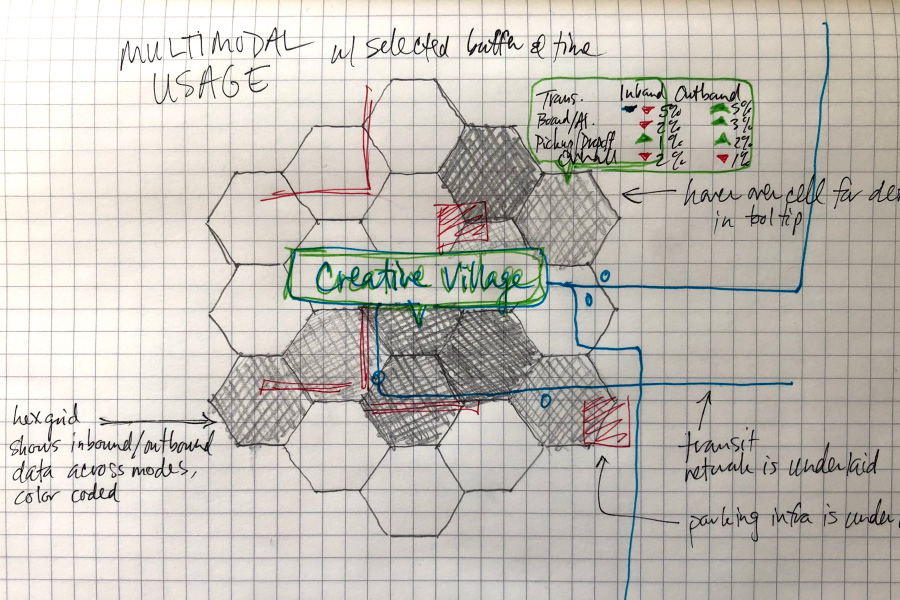 MULTIMODAL
USAGE
w/ selected buffer & time
Trans. Inbound Outbound
5% 5%
Board/Al. 2% 3%
Pickup/Dropoff 1% 2%
2% 1%
hover over cell for
in tooltip
Creative Village
hexgrid
shows inbound/outbound
data across modes,
color coded
transit
network is underlaid
parking infra is under